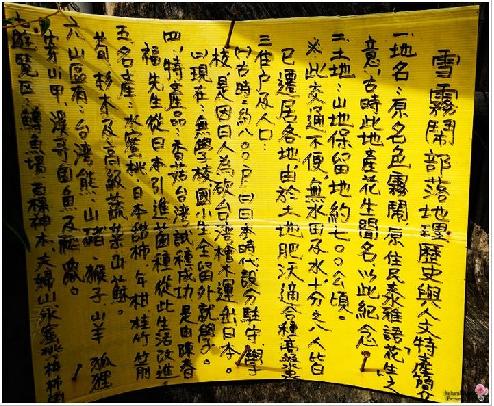 雪霧鬧部落地理歷史與人文特產簡介
一.地名：原名色霧鬧原住民泰雅語「花生」之
意，古時此地產花生聞名以此紀念！
二.土地：山地保留地約七〇〇公頃。
※此交通不便，無水田及水，十分之八人皆
已遷居各地由於土地肥沃適合種高蔬菜
三.住戶及人口：
(一)古時：
日本時代設分駐守學
校，是因日人為砍台灣檜木運到日本。
(二)現在：無學校國小生全留外就學。
四.特產品：香菇台灣試種成功是由陳春
福先生從日本引進菌種從此生活改進
五.名產：水蜜桃日本甜柿、年柑桂竹筍
香杉木及高級蔬菜山蘇。
六.山區有：台灣熊、山豬、猴子山羊狐狸
穿山甲，溪哥固魚及
七.遊覽區：鱒魚場百棵神木夫婦山水蜜桃